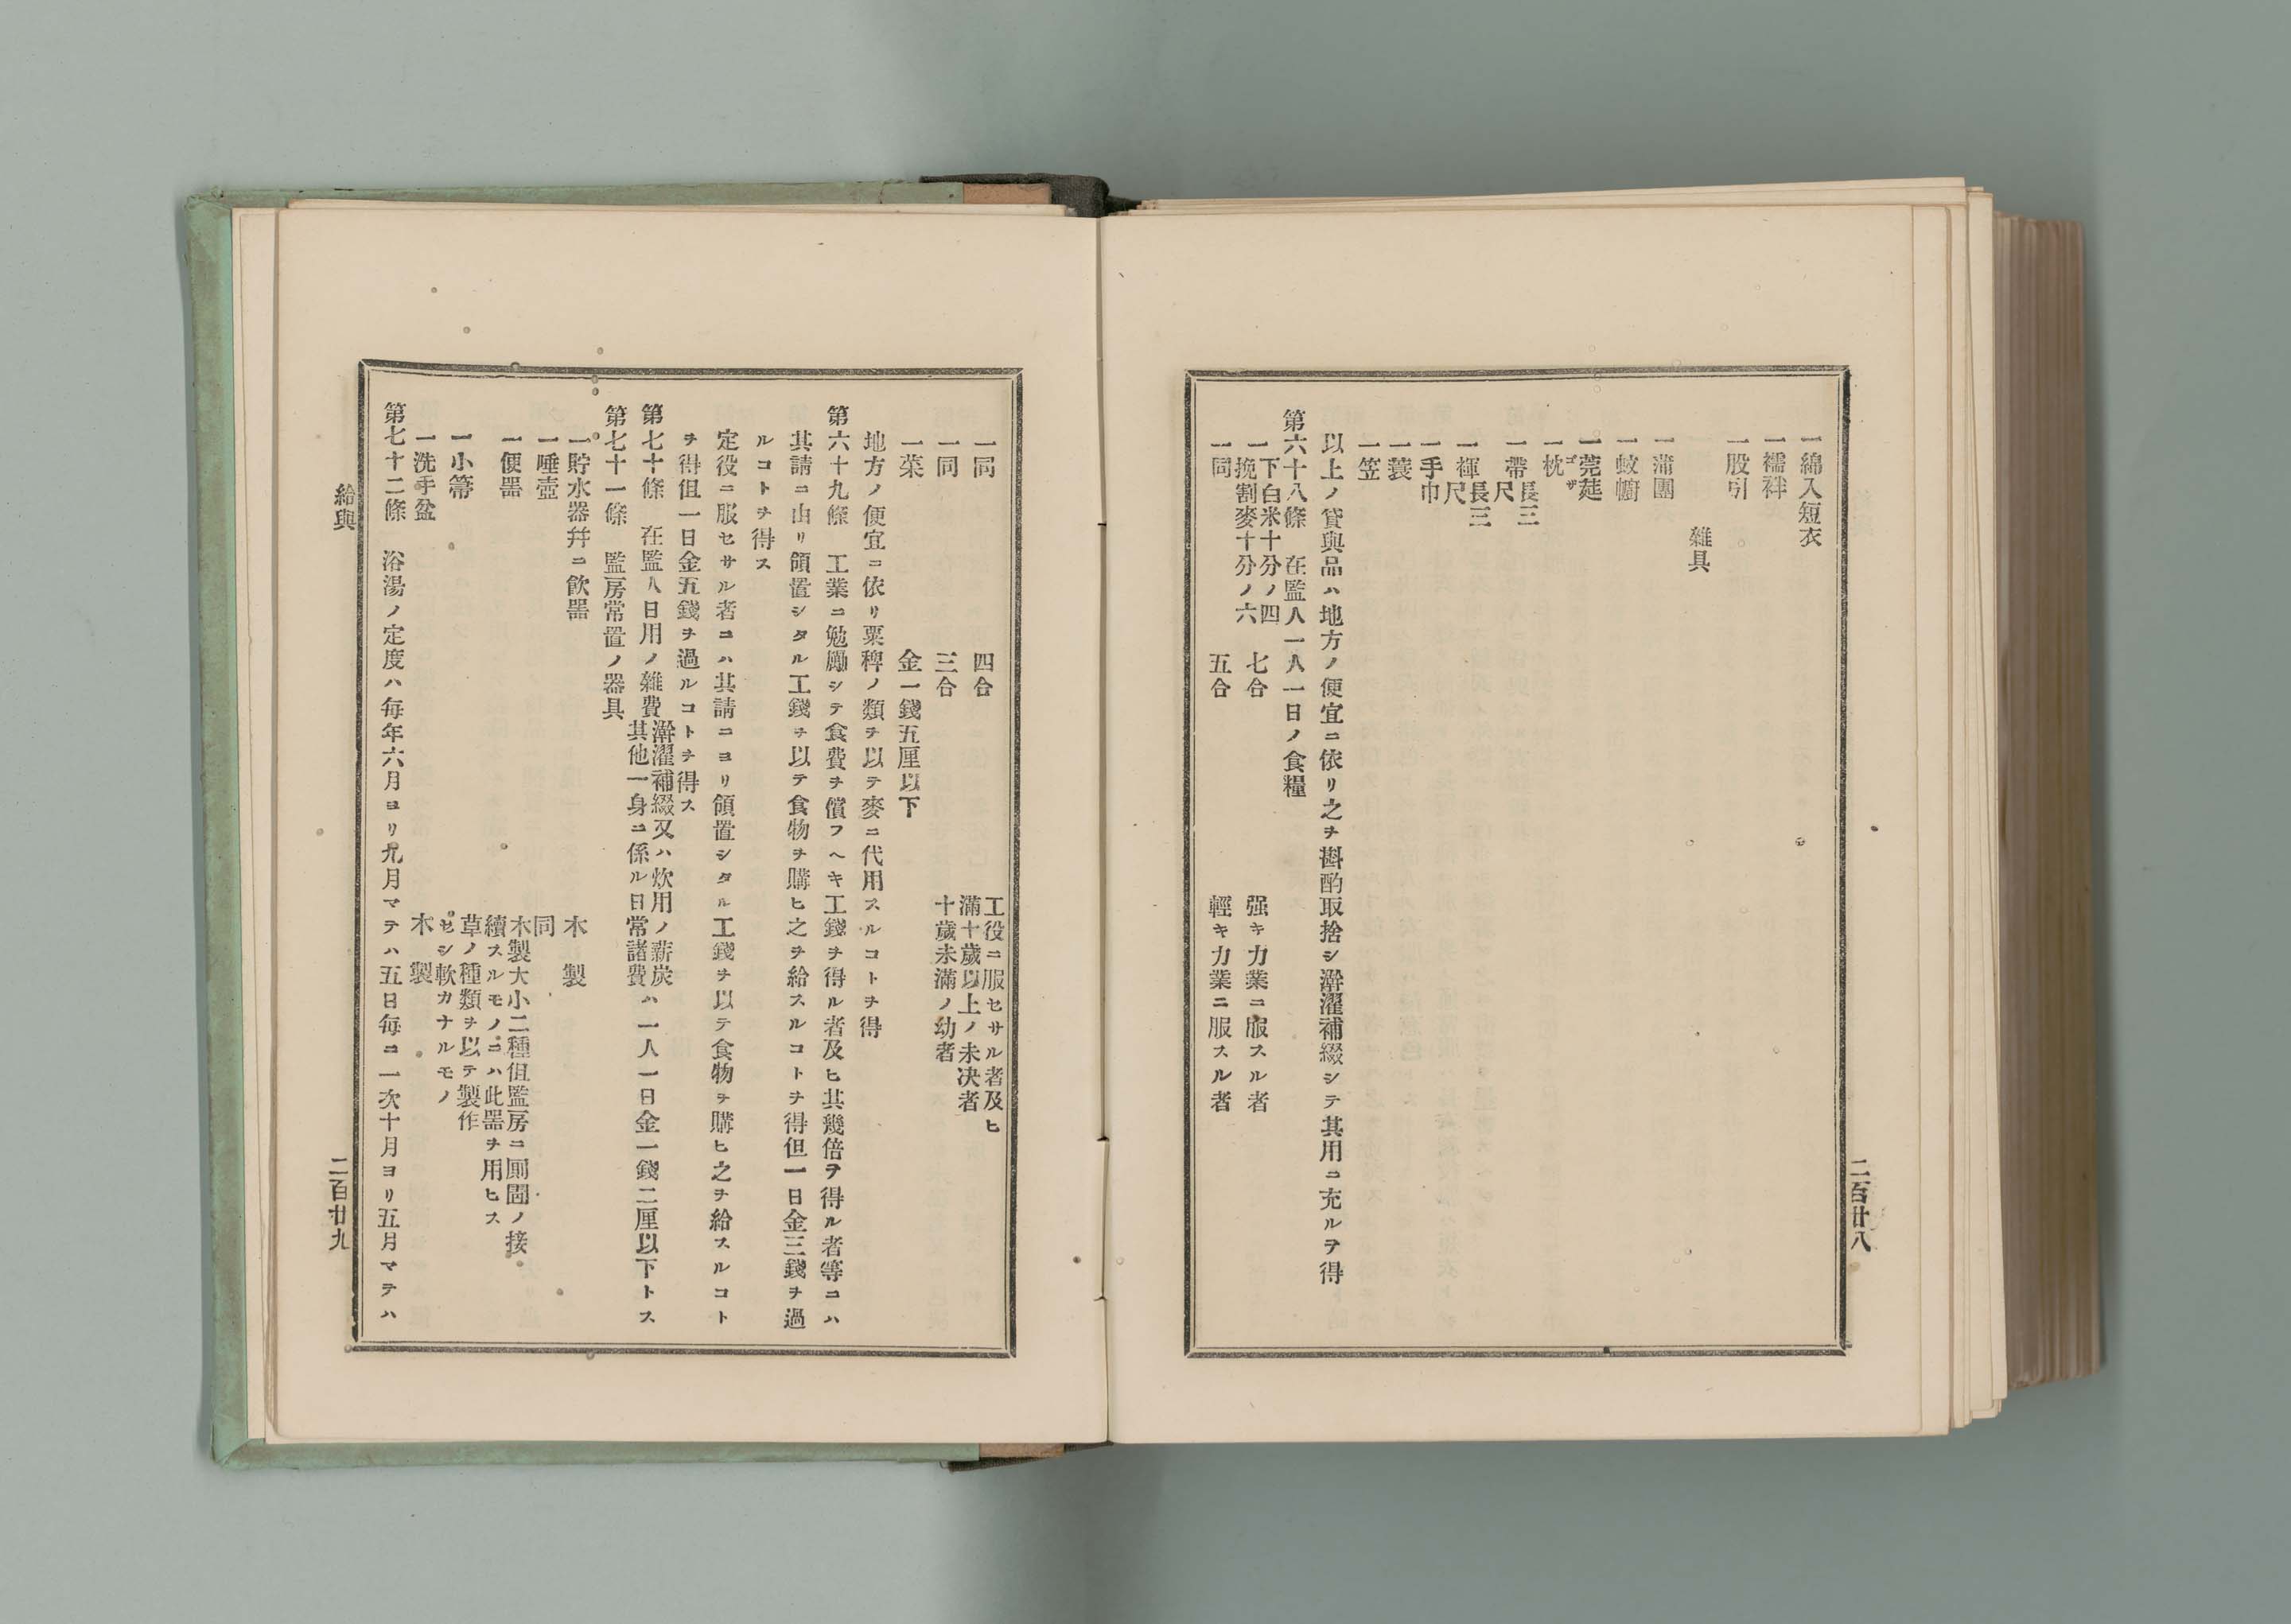 一綿入短衣
一襦袢
一股引
雜具
一蒲團
一蚊幮
一茣莚
ゴザ
一枕
一帶長三尺
一褌長三尺
一手巾
一蓑
一笠
以上ノ貸與品ハ地方ノ便宜ニ依リ之ヲ斟酌取捨シ澣濯補綴シテ其用ニ充ルヲ得
第六十八條 在監人一人一日ノ食糧
一下白米十分ノ四挽割麥十分ノ六 七合 强キ力業ニ服スル者
一同 五合 輕キ力業ニ服スル者
二百廿八
一同 四合 工役ニ服セサル者及ヒ滿十歲以上ノ未決者
一同 三合 十歲未滿ノ幼者
一菜 金一錢五厘以下
地方ノ便宜ニ依リ粟稗ノ類ヲ以テ麥ニ代用スルコトヲ得
第六十九條 工業ニ勉勵シテ食費ヲ償フヘキ工錢ヲ得ル者及ヒ其幾倍ヲ得ル者等ニハ
其請ニ由リ領置シタル工錢ヲ以テ食物ヲ購ヒ之ヲ給スルコトヲ得但一日金三錢ヲ過
ルコトヲ得ス
定役ニ服セサル者ニハ其請ニヨリ領置シタル工錢ヲ以テ食物ヲ購ヒ之ヲ給スルコト
ヲ得但一日金五錢ヲ過ルコトヲ得ス
第七十條 在監人日用ノ雜費澣濯補綴又ハ炊用ノ薪炭其他一身ニ係ル日常諸費ハ一人一日金一錢二厘以下トス
第七十一條 監房常置ノ器具
一貯水器幷ニ飮器 木製
一唾壺 同
一便器 木製大小二種但監房ニ厠圊ノ接續スルモノニハ此器ヲ用ヒス
一小箒 草ノ種類ヲ以テ製作セシ軟カナルモノ
一洗手盆 木製
第七十二條 浴湯ノ定度ハ每年六月ヨリ九月マテハ五日每ニ一次十月ヨリ五月マテハ
給與
二百廿九